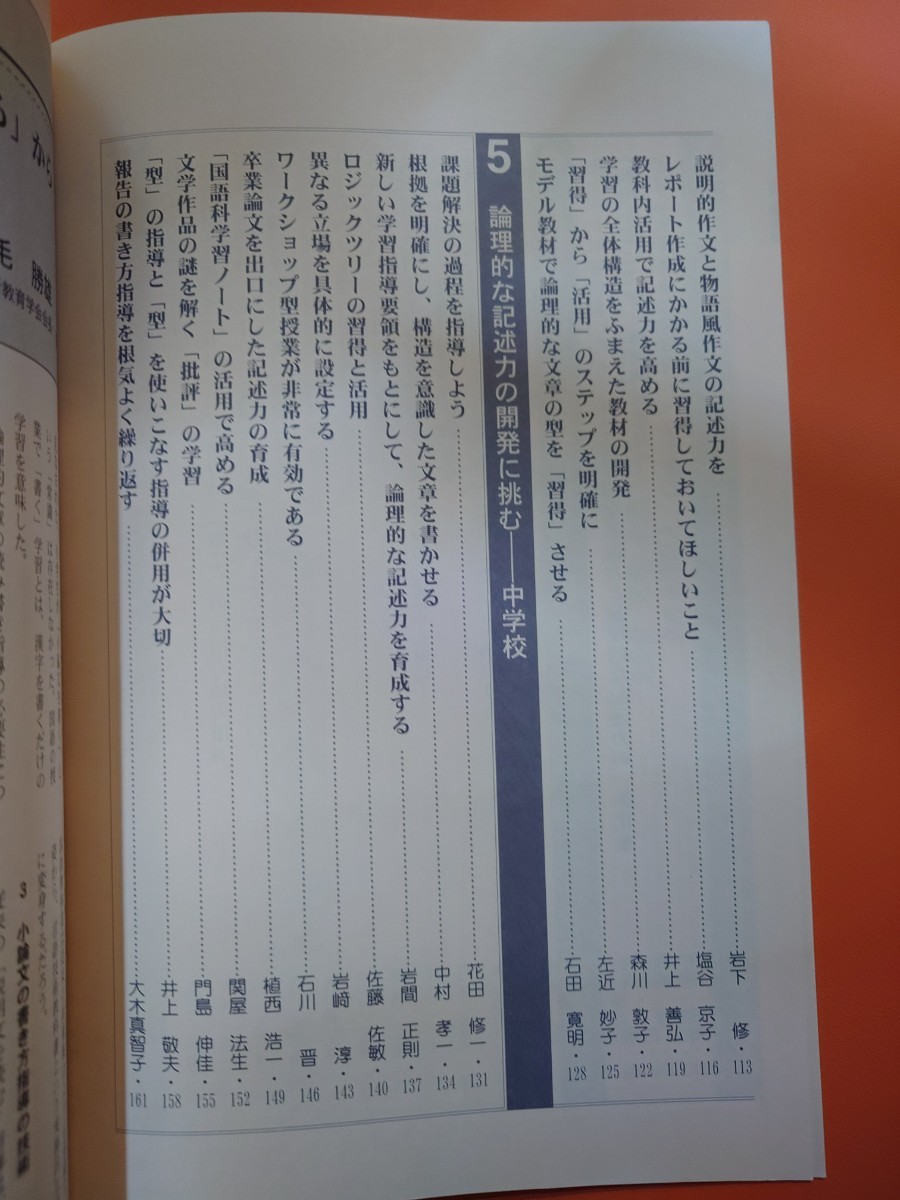 説明的作文と物語風作文の記述力を……岩下 修・113
レポート作成にかかる前に習得しておいてほしいこと……塩谷 京子・116
教科内活用で記述力を高める……井上 善弘・119
学習の全体構造をふまえた教材の開発……森川 敦子・122
「習得」から「活用」のステップを明確に……左近 妙子・125
モデル教材で論理的な文章の型を「習得」させる……石田 寛明・128
5 論理的な記述力の開発に挑む――中学校
課題解決の過程を指導しよう……花田 修一・131
根拠を明確にし、構造を意識した文章を書かせる……中村 孝一・134
新しい学習指導要領をもとにして、論理的な記述力を育成する……岩間 正則・137
ロジックツリーの習得と活用……佐藤 佐敏・140
異なる立場を具体的に設定する……岩﨑 淳・143
ワークショップ型授業が非常に有効である……石川 晋・146
卒業論文を出口にした記述力の育成……植西 浩一・149
「国語科学習ノート」の活用で高める……関屋 法生・152
文学作品の謎を解く「批評」の学習……門島 伸佳・155
「型」の指導と「型」を使いこなす指導の併用が大切……井上 敬夫・158
報告の書き方指導を根気よく繰り返す……大木真智子・161
る」から
毛 勝雄
教育学会会長
いう「常識」は存在しなかった。国語の授
業で「書く」学習とは、漢字を書くだけの
学習を意味した。
に変身するだろう。
3 小論文の書き方指導の技術